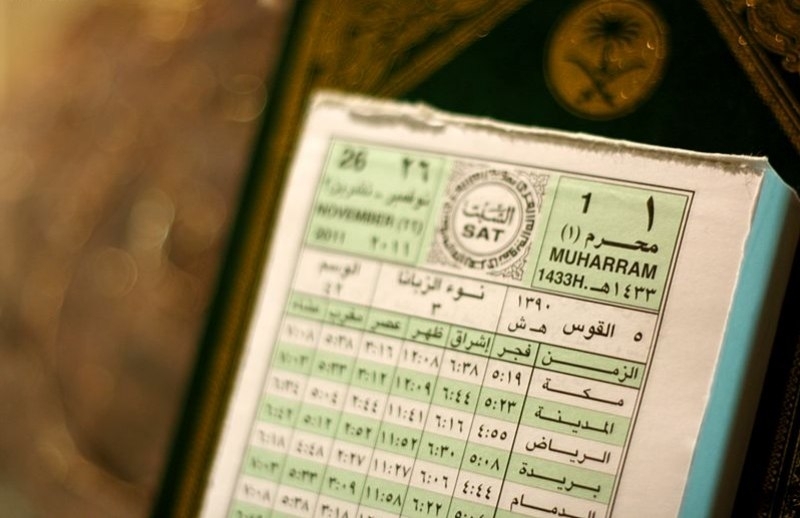 26 ٢٦ السبت 1 ١
نوفمبر - تشرين٢ SAT محرم (١)
NOVEMBER (11) MUHARRAM
2011 ٢٠١١ 1433H. ١٤٣٣هـ
٥ القوس ١٣٩٠ هـ ش نوء الزبانا ٣ الوسم ٤٢
الزمن فجر إشراق ظهر عصر مغرب عشاء
مكة ٥:١٩ ٦:٣٨ ١٢:٠٨ ٣:١٦ ٥:٣٨ ٧:٠٨
المدينة ٥:٢٣ ٦:٤٤ ١٢:٠٩ ٣:١٢ ٥:٣٣ ٧:٠٣
الرياض ٤:٥٥ ٦:١٦ ١١:٤١ ٢:٤٤ ٥:٠٤ ٦:٣٤
بريدة ٥:٠٨ ٦:٣٠ ١١:٥٢ ٢:٥٢ ٥:١٢ ٦:٤٢
الدمام ٤:٤٤ ٦:٠٦ ١١:٢٧ ٢:٢٧ ٤:٤٨ ٦:١٨
٦:٢٢ ١١:٥٨ ٣:٠٩ ٥:٣٣ ٧:٠٣
٣:١٨ ٥:٣٨ ٧:٠٨